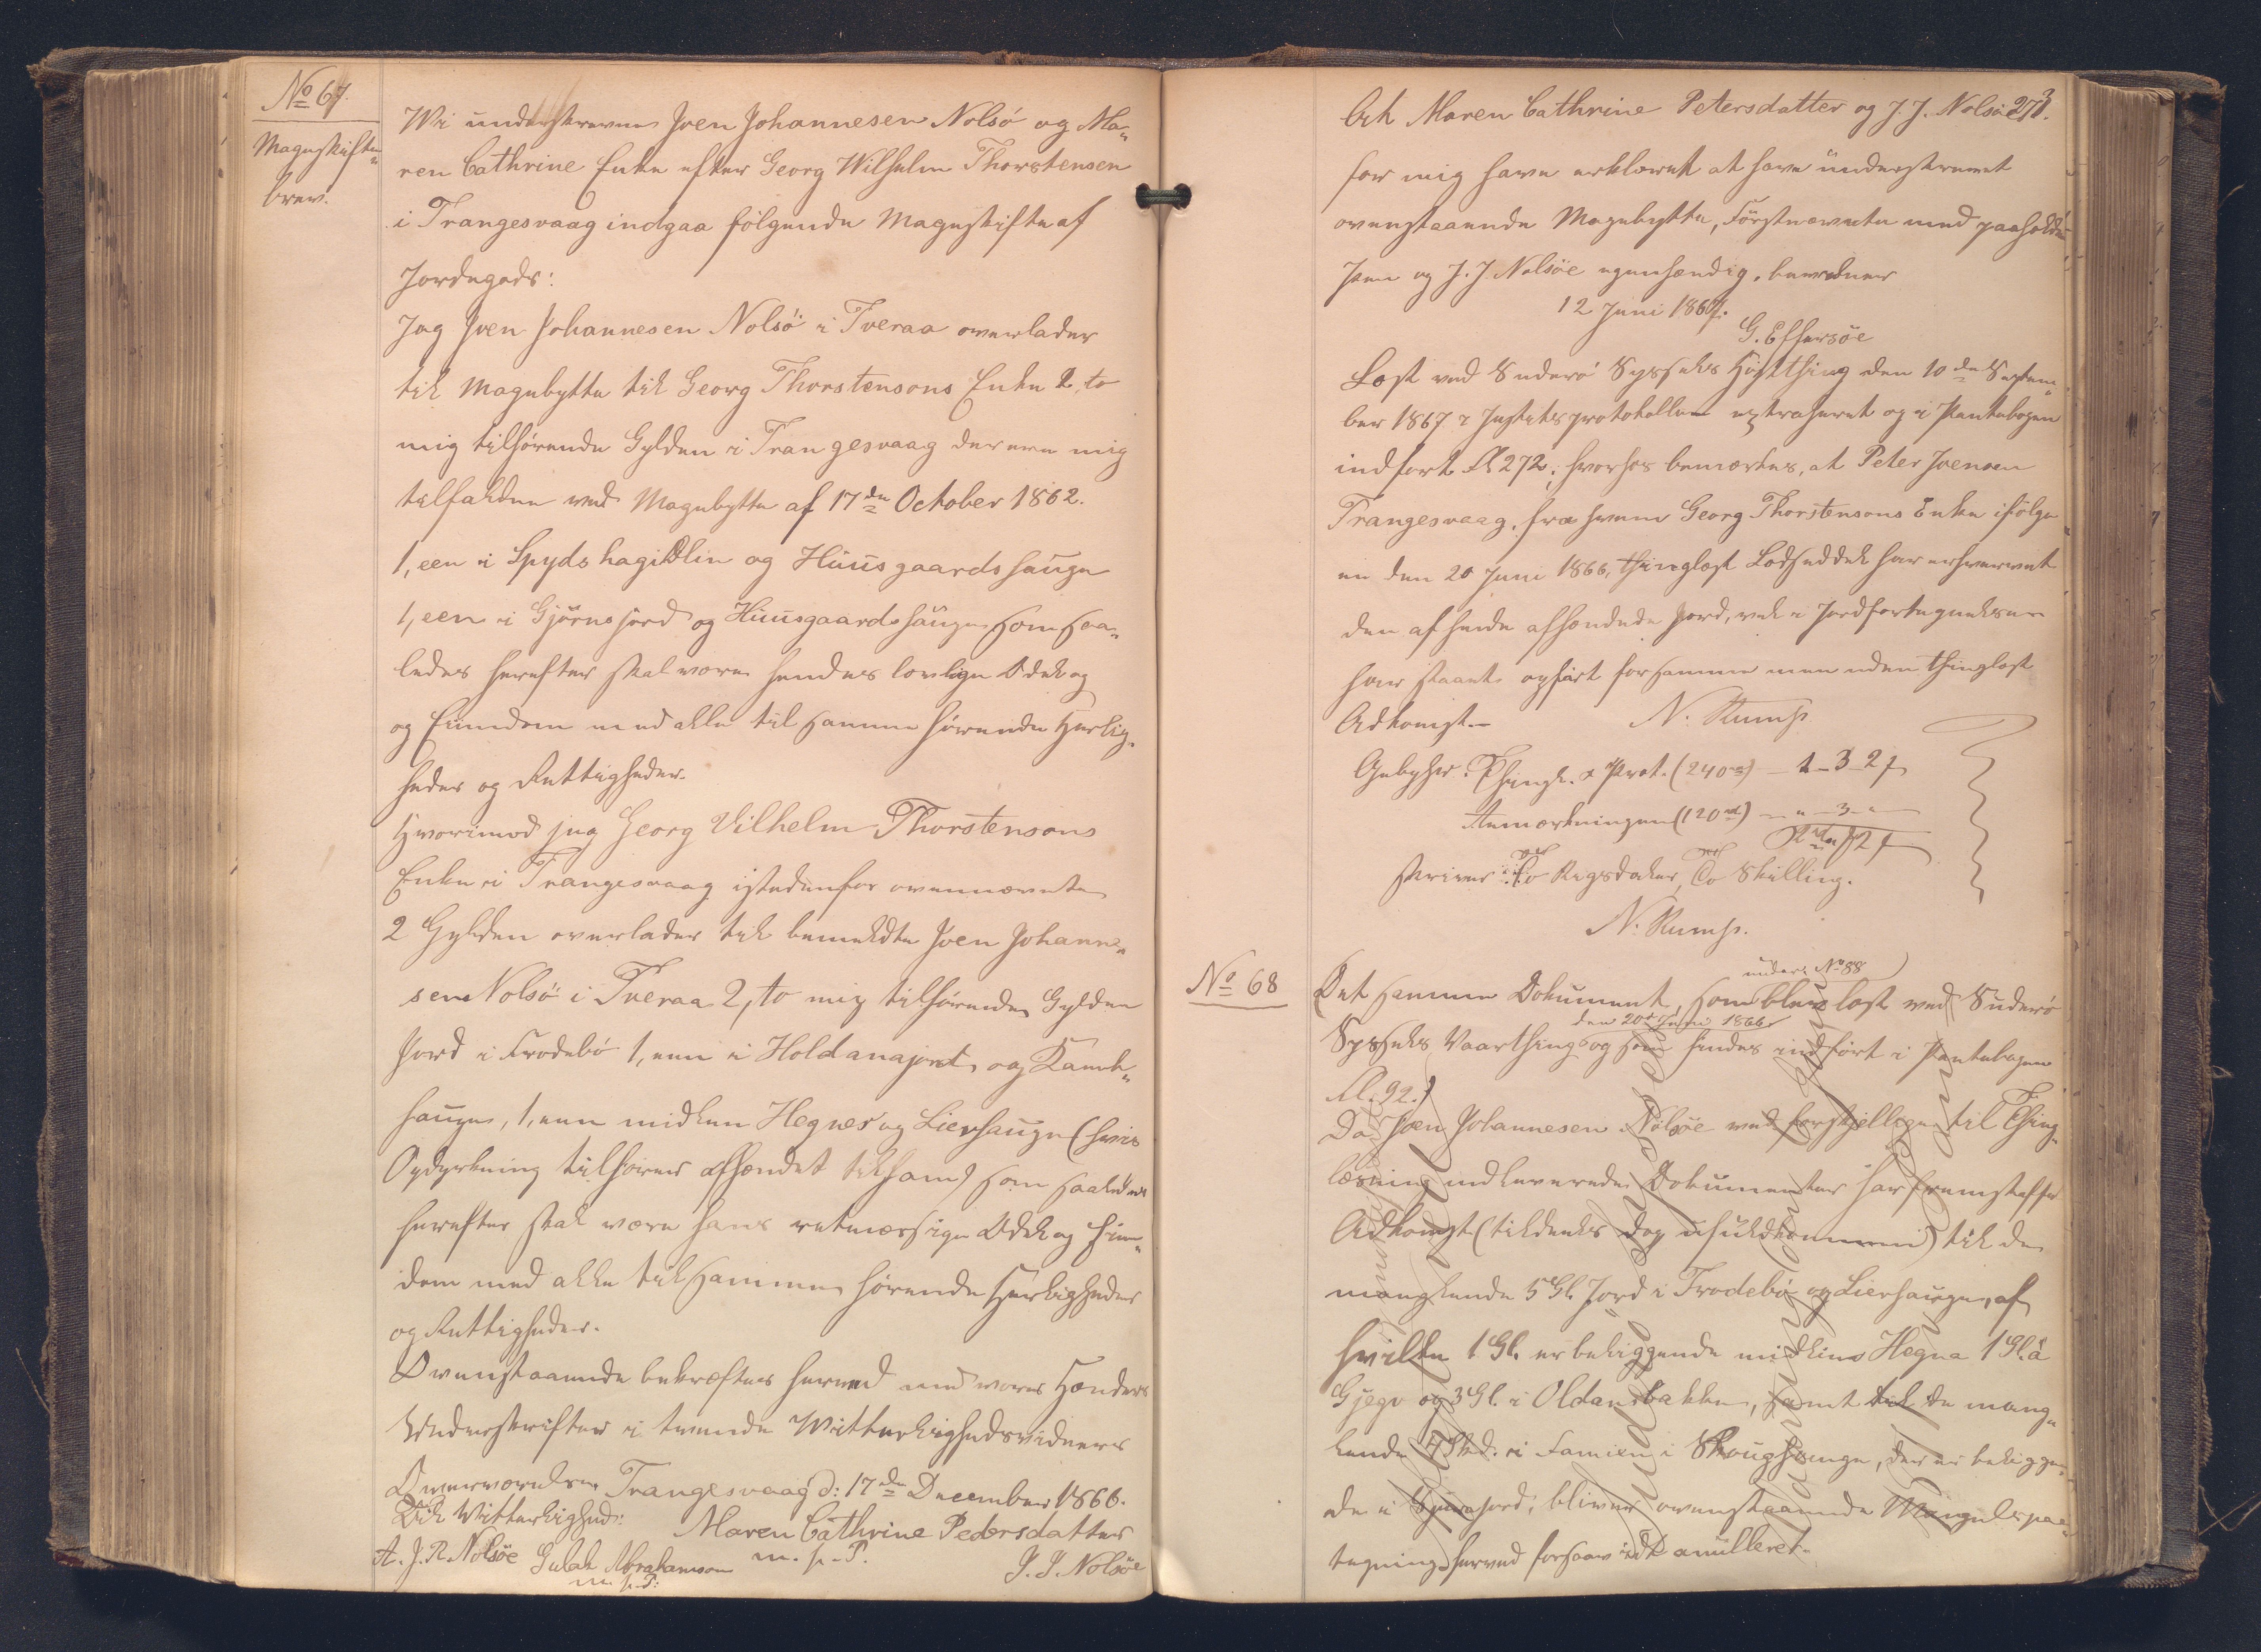 No 67.
Mageskifte-
brev.
Wi underskrevne Joen Johannesen Nolsö og Ma-
ren Cathrine Enke efter Georg Wilhelm Thorstensen
i Trangesvaag indgaa følgende Mageskifte af
Jordegods:
Jeg Joen Johannesen Nolsö i Tveraa overlader
til Magebytte til Georg Thorstensons Enke 2 to
mig tilhørende Gylden i Trangesvaag der ere mig
tilfaldne ved Magebytte af 17de October 1862.
1, een i Spydshagidlin og Huusgaardshauge
1, een i Gjørnsjord og Huusgaardshauge som saa-
ledes herefter skal være hendes lovlige Odel og
og Eiendom med alle til samme hørende Herlig-
heder og Rettigheder.
Hvorimod jeg Georg Vilhelm Thorstensons
Enke i Trangesvaag istedenfor ovennævnte
2 Gylden overlader til bemeldte Joen Johanne-
sen Nolsö i Tveraa 2, to mig tilhørende Gylden
Jord i Frodebö 1, een i Holdanajord og Lamb-
hauge, 1, een midlum Hegner og Lierhauge (hvis
Opdyrkning tilhører afhændet til ham) som saaledes
herefter skal være hans retmæssige Odel og Eien-
dom med alle til samme hørende Herligheder
og Rettigheder.
Ovenstaaende bekræftes herved med vores Hænders
Underskrifter i tvende Witterlighedsvidners
Overværelse. Trangesvaag d: 17de December 1866.
Til Witterlighed: Maren Cathrine Pedersdatter
A. J. R. Nolsöe Gulak Abrahamson m. f. P. J. J. Nolsöe
m. f. P.
273.
At Maren Cathrine Petersdatter og J. J. Nolsöe
for mig have erklæret at have underskrevet
ovenstaaende Magebytte, Førstnævnte med paaholden
Pen og J. J Nolsöe egenhændig, bevidner
12 Juni 1867.
G. Effersöe
Læst ved Suderö Syssels Høstthing den 10de Septem-
ber 1867 i Justitsprotokollen extraheret og i Pantebogen
indført fl 272, hvorhos bemærkes, at Peter Joensen
Trangesvaag, fra hvem Georg Thorstensons Enke ifølge
en den 20 Juni 1866, thinglæst Lodseddel har erhvervet
den af hende afhændede Jord, vel i Jordfortegnelsen
har staaet opført for samme men uden thinglæst
Adkomst.- N. Rump
Gebyhr. Thingl. & Prot. (240) - 1-3-2
Anmærkningen (120) - " - 3 - "
2
skriver To Rigsdaler, To Skilling.
N. Rump.
No 68
under No 88
Det samme Dokument, som blev læst ved Suderö
den 20de Juni 1866
Syssels Vaarthing og som findes indført i Pantebogen
fl. 92.)
Da Joen Johannesen Nolsöe ved forskjellige til Thing-
læsning indleverede Dokumenter har fremskaffet
Adkomst (tildeels dog ufuldkommen) til de
manglende 5 Gl. Jord i Frodebö og Lierhauge, af
hvilke 1 Gl. er beliggende midlins Hegna 1 Gl. à
Gjegv og 3 Gl. i Oldansbakken, samt til de mang-
lende i Famien i Skoughauge, der er beliggen-
de i Gjørnsjord, bliver ovenstaaende Mangelspaa-
tegning herved forsaavidt anulleret.